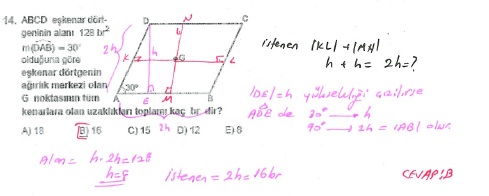 14. ABCD eşkenar dört-
geninin alanı 128 br²
m(DAB) = 30°
olduğuna göre
eşkenar dörtgenin
ağırlık merkezi olan
G noktasının tüm
kenarlara olan uzaklıkları toplamı kaç br dir?
A) 18 B) 16 C) 15 D) 12 E) 8
D N C
2h h
K G L
30°
A E M B
2h
istenen |KL|+|MN|
h + h = 2h = ?
|DE|=h yüksekliği çizilirse
ADE de 30° → h
90° → 2h = |AB| olur.
Alan = h.2h = 128
h = 8
istenen = 2h = 16br
CEVAP:B